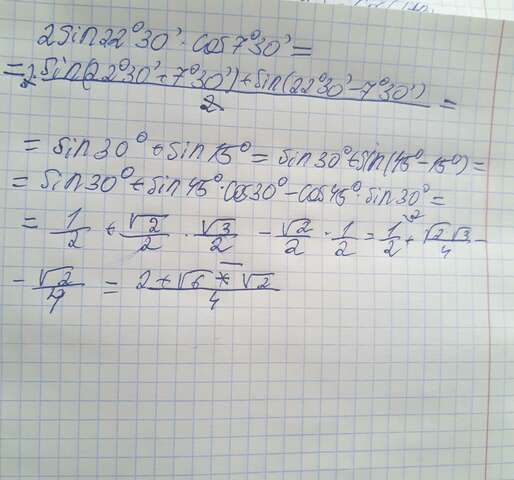 2sin22°30'·cos7°30'=
=2·(sin(22°30'+7°30')+sin(22°30'-7°30'))/2=
=sin30°+sin15°=sin30°+sin(45°-15°)=
=sin30°+sin45°·cos30°-cos45°·sin30°=
=1/2+√2/2·√3/2-√2/2·1/2=1/2+√2√3/4-
-√2/4=(2+√6-√2)/4